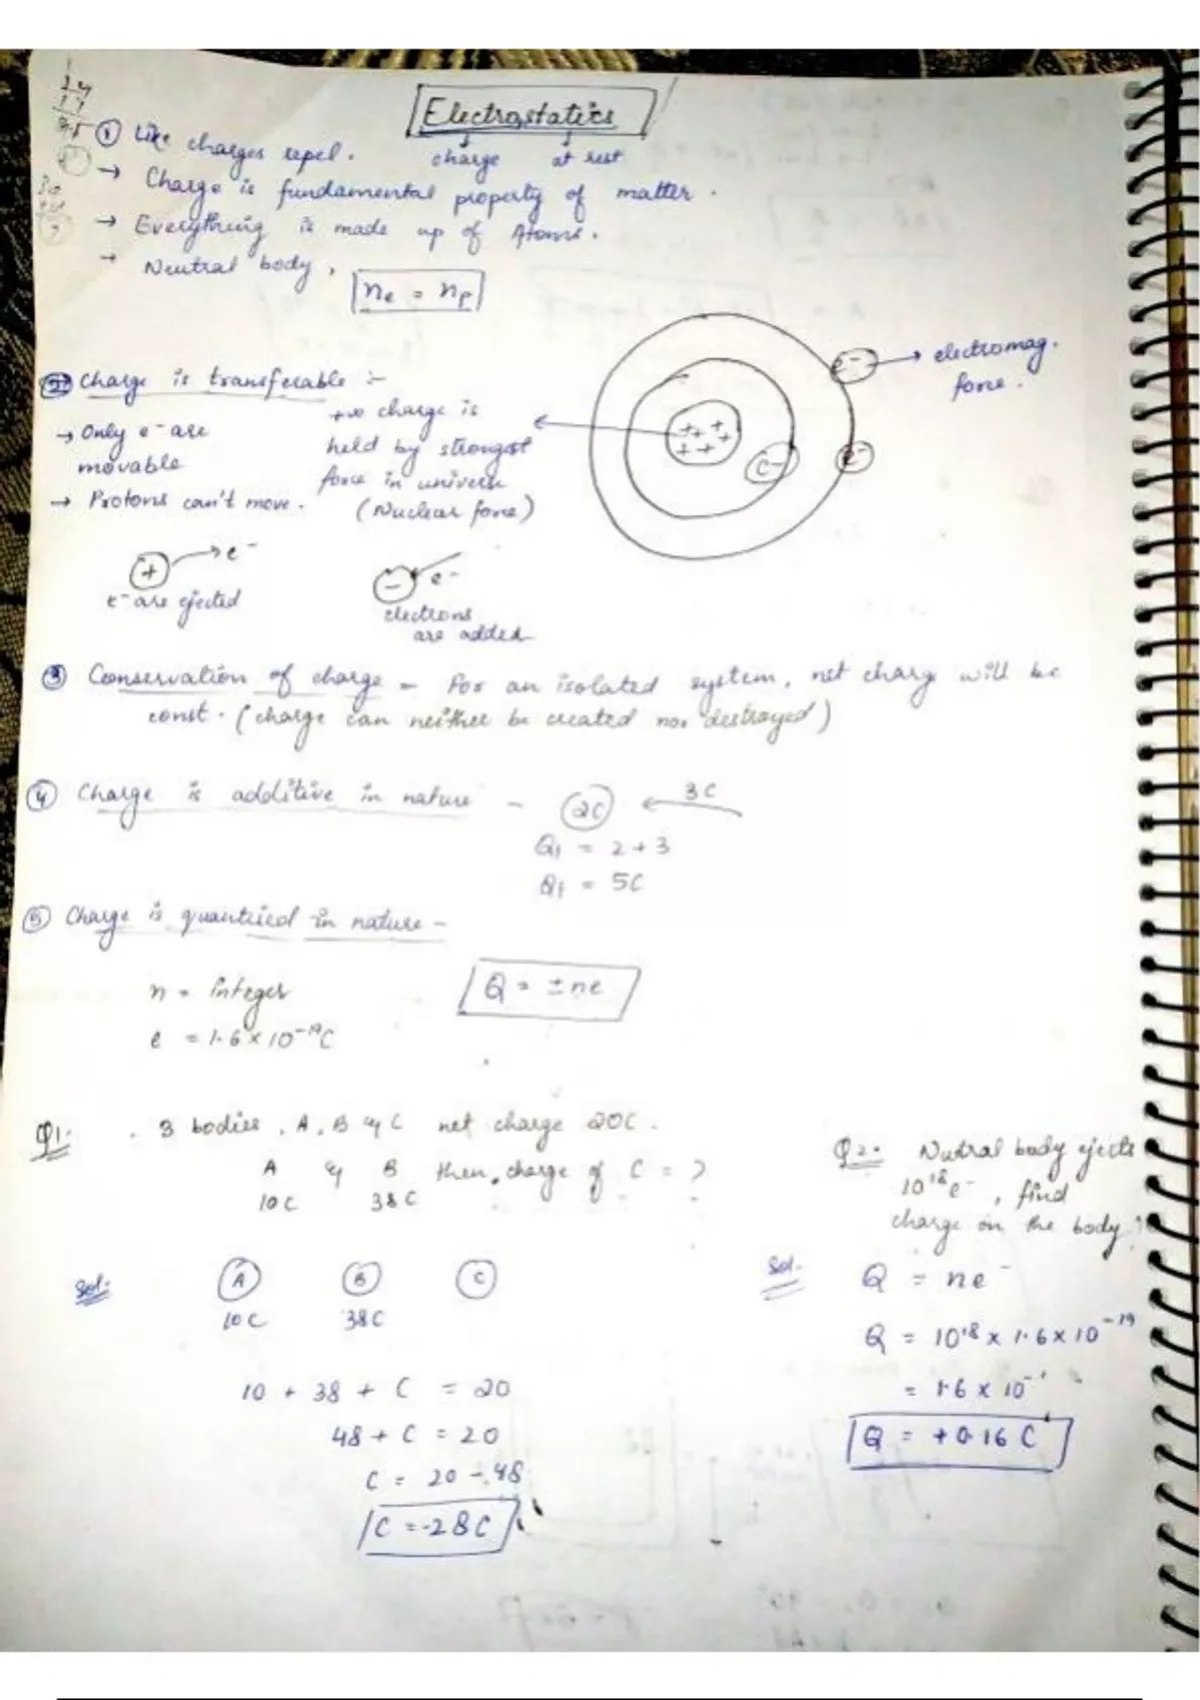 Electrostatics
charge at rest
① Like charges repel.
→ Charge is fundamental property of matter.
→ Everything is made up of Atoms.
→ Neutral body, ne = np
② Charge is transferable :-
→ Only e- are movable
→ Protons can't move.
+ve charge is
held by strongest
force in univers
(Nuclear force)
e- → electromag. force.
e-
e-
+ → e-
e- are ejected
- e-
electrons
are added
③ Conservation of charge - For an isolated system, net charg will be
const. (charge can neither be created nor destroyed)
④ Charge is additive in nature - 2C ← 3C
Q1 = 2 + 3
Q1 = 5C
⑤ Charge is quantised in nature -
n = integer
Q = ±ne
e = 1.6 x 10-19C
Q1. 3 bodies, A, B & C net charge 20C.
A & B then, charge of C = ?
10C 38C
Sol. A B C
10C 38C
10 + 38 + C = 20
48 + C = 20
C = 20 - 48
C = -28C
Q2. Nutral body ejects
10^18 e-, find
charge on the body?
Sol. Q = ne-
Q = 10^18 x 1.6 x 10^-19
= 1.6 x 10^-1
Q = +0.16 C